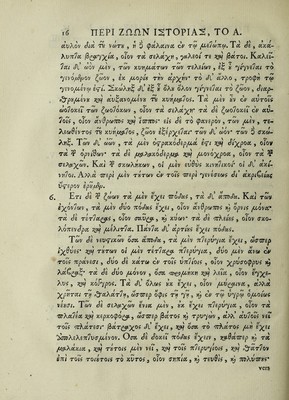 16 ΠΕΡΙ ΖΩΩΝ ΙΣΤΟΡΙΑΣ, ΤΟ Α.
αὐλὸν διὰ τῦ νώτυ, ἡ ἢ φάλαινα ἐν τῷ μετώπῳ. Τὰ δὲ, ἀκά-
λυπτα βραγχία, οἷον τὰ σελάχη, γαλεοί τε καὶ βάτοι. Καλεῖ-
ται δ' ὠὸν μὲν, τῶν κυημάτων τῶν τελείων, ἐξ ὗ γίγνεται τὸ
γινόμενον ζῶον, ἐκ μορίυ τὴν ἀρχήν· τὸ δ' ἄλλο, τροφὴ τῷ
γινομένῳ ἐστί. Σκώληξ δ' ἐξ ὗ ὅλυ ὅλον γίγνεται τὸ ζῶον, διαρ-
θρυμένυ καὶ αὐξανομένυ τῦ κυήματος. Τὰ μὲν ἐν ἐν αὑτοῖς
ὠοτοκεῖ τῶν ζωοτόκων, οἷον τὰ σελάχη· τὰ δὲ ζωοτοκεῖ ἐν αὑ-
τοῖς, οἷον ἄνθρωπος καὶ ἵππος· εἰς δὲ τὸ φανερὸν, τῶν μὲν, τε-
λειωθέντος τῦ κυήματος, ζῶον ἐξέρχεται· τῶν δ' ὠόν· τῶν δὲ σκώ-
ληξ. Τῶν δ' ὠῶν, τὰ μὲν ὀστρακόδερμά ἐστι καὶ δίχροα, οἷον
τὰ τῶν ὀρνίθων· τὰ δὲ μαλακόδερμα καὶ μονόχροα, οἷον τὰ τῶν
σελαχῶν. Καὶ τῶν σκωλήκων, οἱ μὲν εὐθὺς κινητικοὶ· οἱ δ' ἀκί-
νητοι. Ἀλλὰ περὶ μὲν τύτων ἐν τοῖς περὶ γενέσεως δι' ἀκριβείας
ὕστερον ἐρῦμεν.
6. Ἔτι δὲ τῶν ζώων τὰ μὲν ἔχει πόδας, τὰ δ' ἄποδα. Καὶ τῶν
ἐχόντων, τὰ μὲν δύο πόδας ἔχει, οἷον ἄνθρωπος καὶ ὄρνις μόνα·
τὰ δὲ τέτταρας, οἷον σαῦρα, καὶ κύων· τὰ δὲ πλείυς, οἷον σκο-
λόπενδρα καὶ μέλιττα. Πάντα δ' ἀρτίυς ἔχει πόδας.
Τῶν δὲ νευστικῶν ὅσα ἄποδα, τὰ μὲν πτερύγια ἔχει, ὥσπερ
ἰχθῦς· καὶ τύτων οἱ μὲν τέτταρα πτερύγια, δύο μὲν ἄνω ἐν
τοῖς πρανέσι, δύο δὲ κάτω ἐν τοῖς ὑπτίοις, οἷον χρύσοφρυς καὶ
λάβραξ· τὰ δὲ δύο μόνον, ὅσα προμήκη καὶ λεῖα, οἷον ἔγχε-
λυς, καὶ κόγγρος. Τὰ δ' ὅλως ὐκ ἔχει, οἷον μύραινα, ἀλλὰ
χρῆται τῇ θαλάττῃ, ὥσπερ ὄφις τῇ γῇ, καὶ ἐν τῷ ὑγρῷ ὁμοίως
νέυσι. Τῶν δὲ σελαχῶν ἔνια μὲν, ὐκ ἔχει πτερύγια, οἷον τὰ
πλατέα καὶ κερκοφόρα, ὥσπερ βάτος καὶ τρυγών, ἀλλ' αὐτοῖς νεῖ
τοῖς πλάτεσι· βάτραχος δ' ἔχει, καὶ ὅσα τὸ πλάτος μὴ ἔχει
ἀπολελεπτυσμένον. Ὅσα δὲ δοκεῖ πόδας ἔχειν, καθάπερ τὰ
μαλάκια, καὶ τύτοις μὲν νεῖ, καὶ τοῖς πτερυγίοις, καὶ θᾶττον
ἐπὶ τοῖς τοιύτοις τὸ κύτος, οἷον σηπία, καὶ τευθὶς, καὶ πολύπυν·
νειν